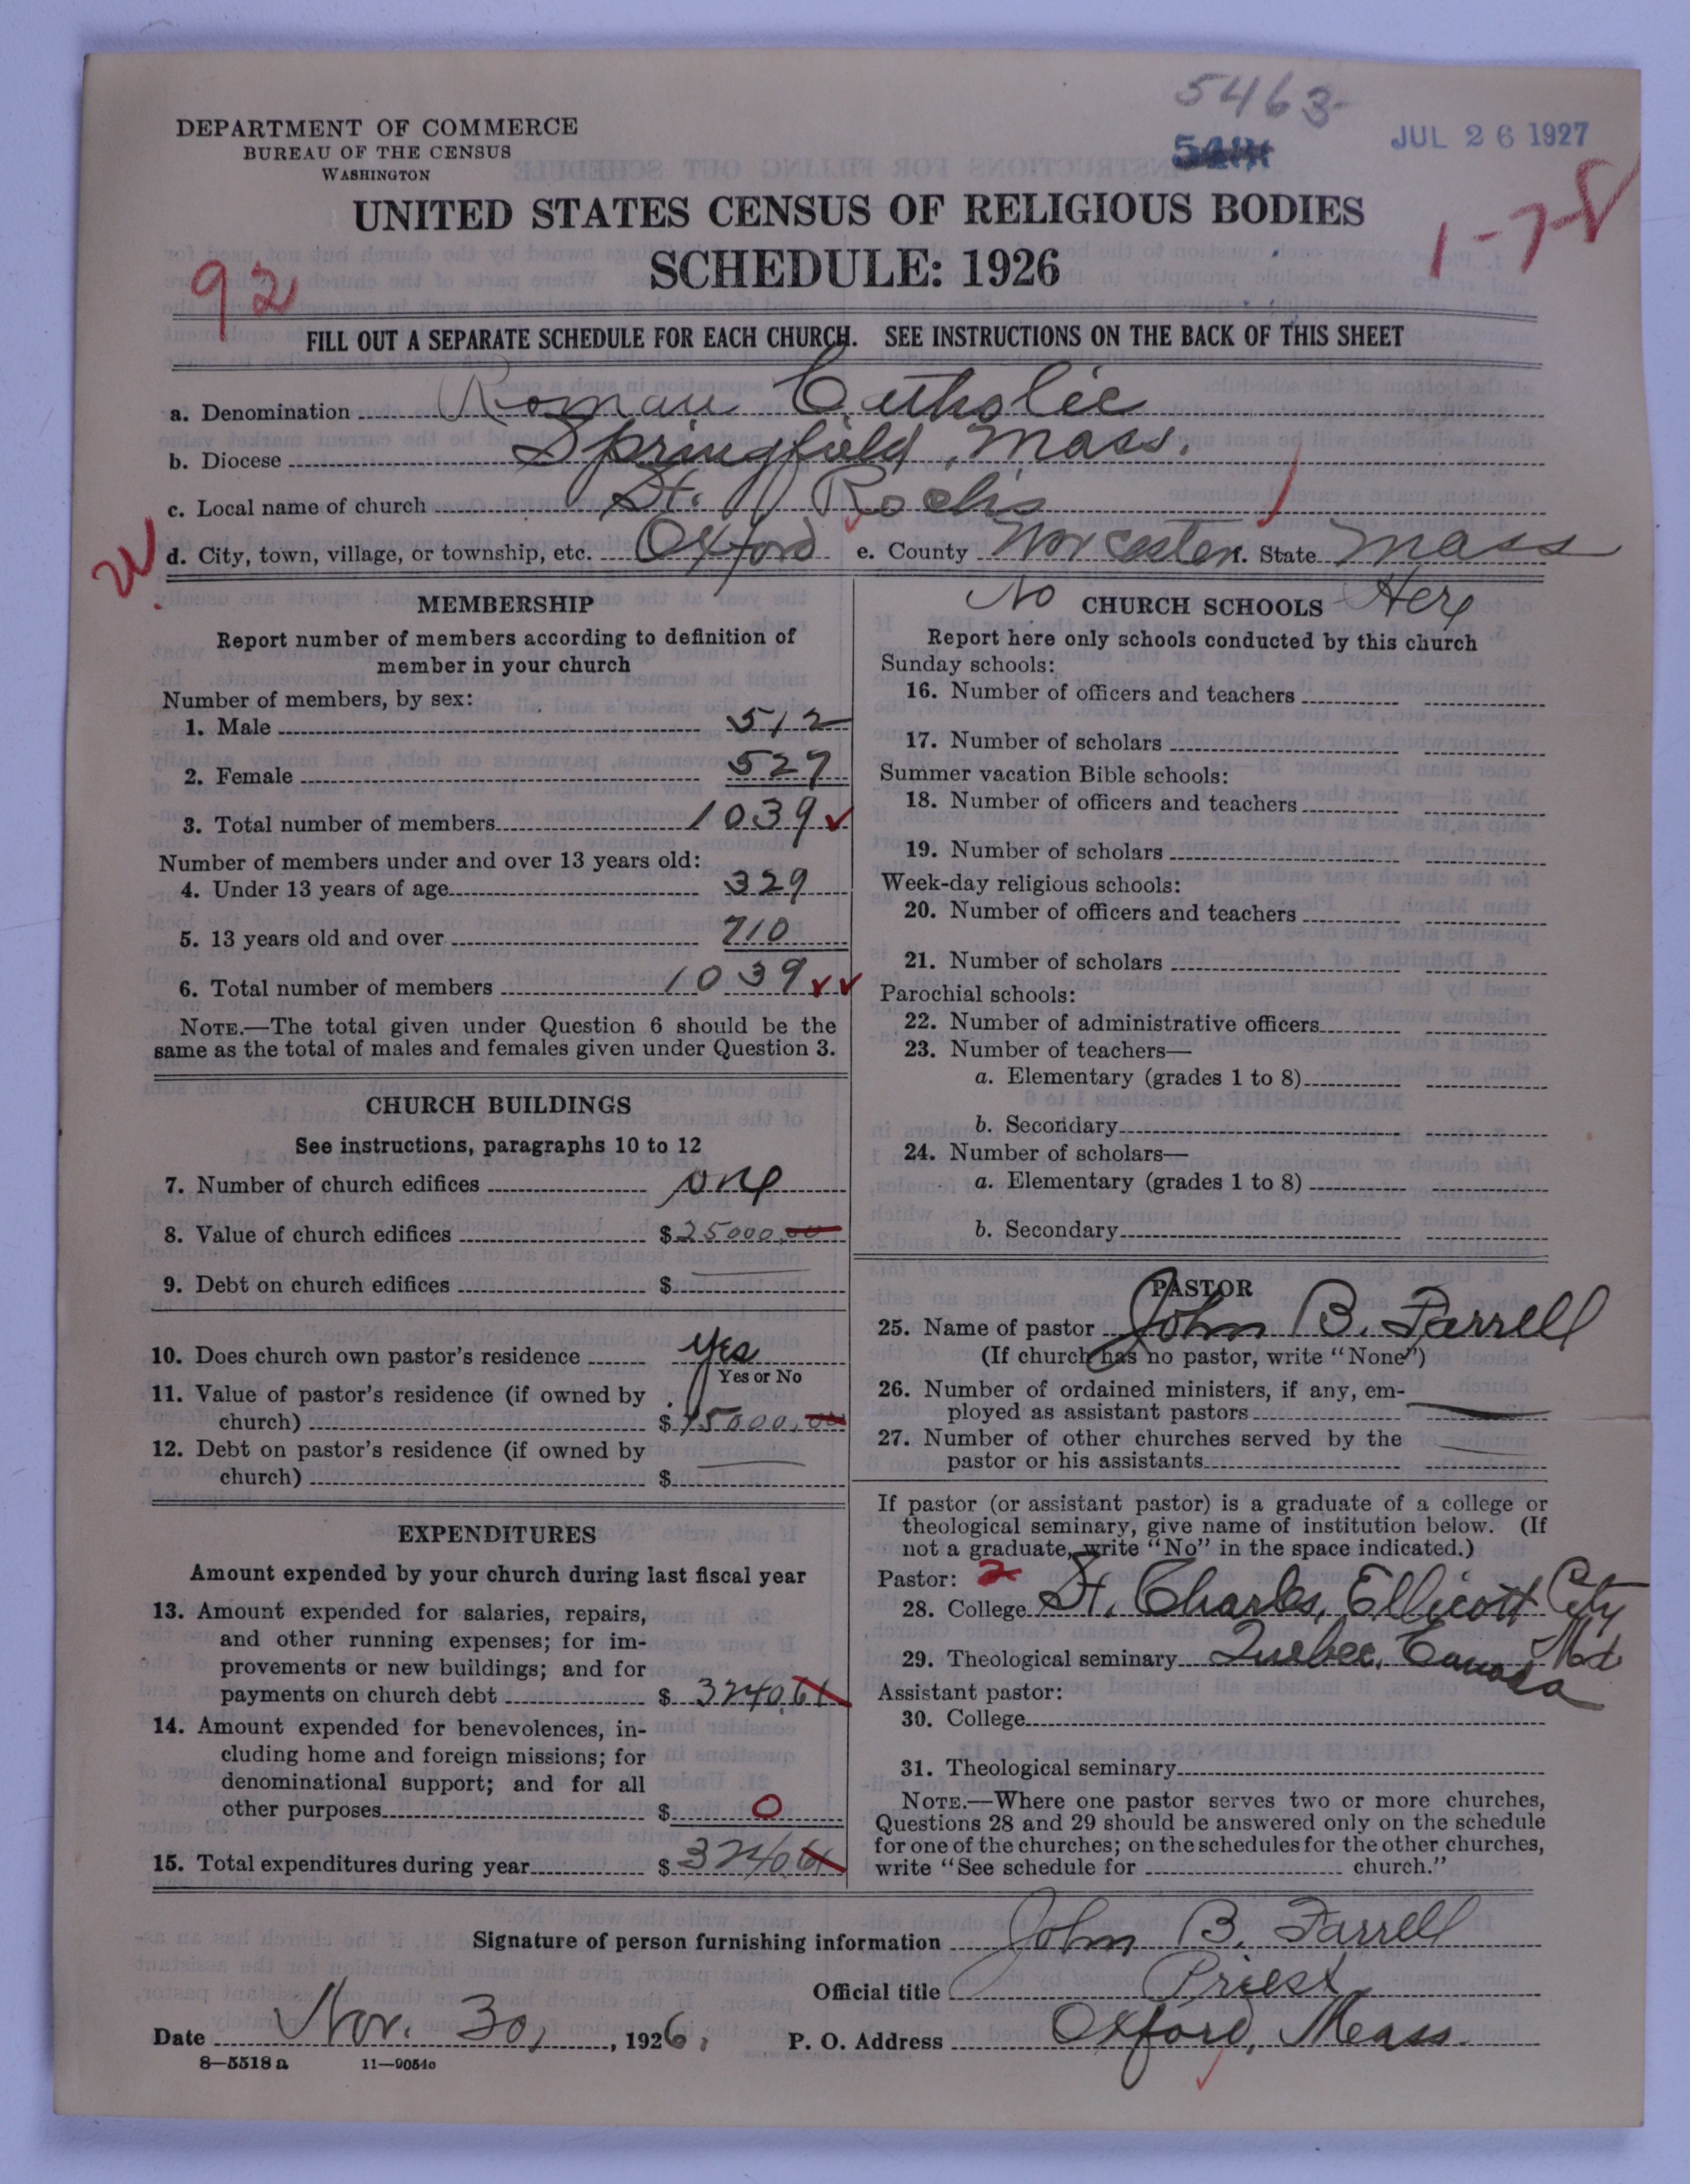 5463
JUL 26 1927
DEPARTMENT OF COMMERCE
BUREAU OF THE CENSUS
WASHINGTON
1-7-8
UNITED STATES CENSUS OF RELIGIOUS BODIES
SCHEDULE: 1926
92
FILL OUT A SEPARATE SCHEDULE FOR EACH CHURCH. SEE INSTRUCTIONS ON THE BACK OF THIS SHEET
a. Denomination Roman Catholic
b. Diocese Springfield, Mass.
c. Local name of church St. Rochs
d. City, town, village, or township, etc. Oxford e. County Worcester f. State Mass
MEMBERSHIP
Report number of members according to definition of
member in your church
Number of members, by sex:
1. Male 512
2. Female 527
3. Total number of members 1039
Number of members under and over 13 years old:
4. Under 13 years of age 329
5. 13 years old and over 710
6. Total number of members 1039
NOTE.—The total given under Question 6 should be the
same as the total of males and females given under Question 3.
CHURCH BUILDINGS
See instructions, paragraphs 10 to 12
7. Number of church edifices one
8. Value of church edifices $25000.00
9. Debt on church edifices $
10. Does church own pastor's residence Yes
Yes or No
11. Value of pastor's residence (if owned by
church) $15000.00
12. Debt on pastor's residence (if owned by
church) $
EXPENDITURES
Amount expended by your church during last fiscal year
13. Amount expended for salaries, repairs,
and other running expenses; for im-
provements or new buildings; and for
payments on church debt $3240.61
14. Amount expended for benevolences, in-
cluding home and foreign missions; for
denominational support; and for all
other purposes $0
15. Total expenditures during year $3240.61
No CHURCH SCHOOLS Here
Report here only schools conducted by this church
Sunday schools:
16. Number of officers and teachers
17. Number of scholars
Summer vacation Bible schools:
18. Number of officers and teachers
19. Number of scholars
Week-day religious schools:
20. Number of officers and teachers
21. Number of scholars
Parochial schools:
22. Number of administrative officers
23. Number of teachers—
a. Elementary (grades 1 to 8)
b. Secondary
24. Number of scholars—
a. Elementary (grades 1 to 8)
b. Secondary
PASTOR
25. Name of pastor John B. Farrell
(If church has no pastor, write "None")
26. Number of ordained ministers, if any, em-
ployed as assistant pastors
27. Number of other churches served by the
pastor or his assistants
If pastor (or assistant pastor) is a graduate of a college or
theological seminary, give name of institution below. (If
not a graduate, write "No" in the space indicated.)
Pastor: 2
28. College St. Charles, Ellicott City
Md
29. Theological seminary Quebec, Canada
Assistant pastor:
30. College
31. Theological seminary
NOTE.—Where one pastor serves two or more churches,
Questions 28 and 29 should be answered only on the schedule
for one of the churches; on the schedules for the other churches,
write "See schedule for church."
Signature of person furnishing information John B. Farrell
Official title Priest
Date Nov. 30, 1926. P. O. Address Oxford, Mass.
8—5518a 11—9054c